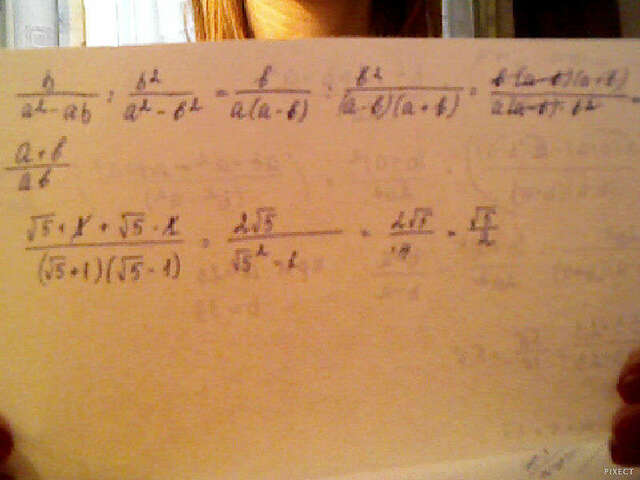 b/(a² - ab) : b²/(a² - b²) = b/(a(a-b)) : b²/((a-b)(a+b)) = b(a-b)(a+b)/(a(a-b)·b²) =
(a+b)/(ab)
(√5 + 1 + √5 - 1)/((√5+1)(√5-1)) = 2√5/(√5² - 1) = 2√5/4 = √5/2
PIXECT